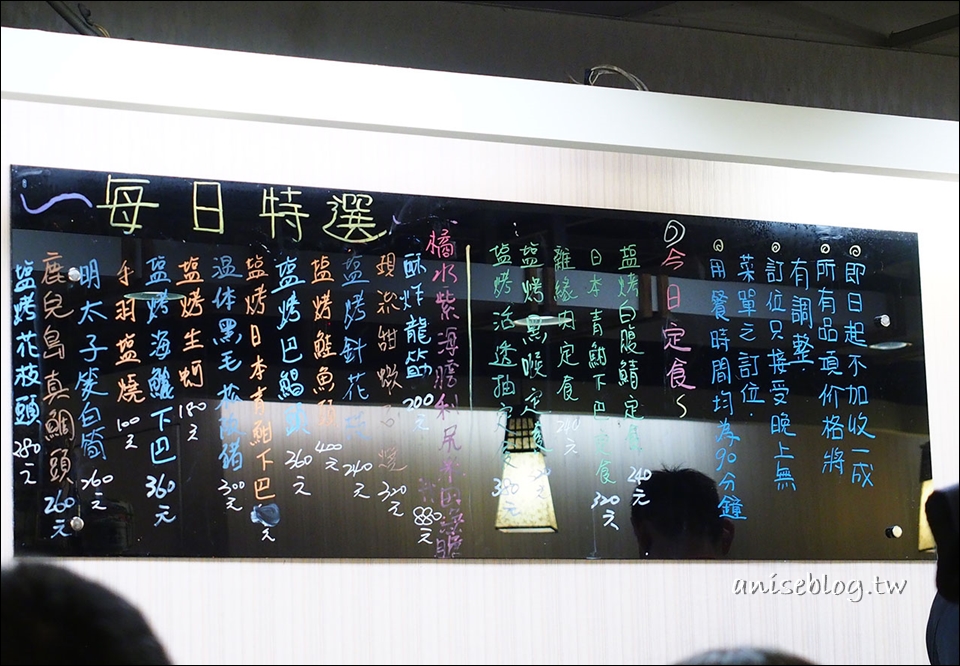 每日特選
◎即日起不加收一成
◎所有品項价格將
有調整
◎訂位只接受晚上無
菜單之訂位
◎用餐時間均為90分鐘
今日定食
塩烤白腹鯖定食 240元
日本青魽下巴定食 320元
雞緣肉定食
塩烤黑喉定食
塩烤活透抽定食 380元
橘水紫海膽
酥炸龍筋 200元 880元
320元
塩烤針花 240元
塩烤鮭魚頭 400元
塩烤巴鯧頭 360元
塩烤日本青魽下巴 元
温体黑毛松阪豬 300元
塩烤生蚵 180元
塩烤海鱺下巴 360元
手羽塩燒 100元
明太子筊白筍 260元
鹿兒島真鯛頭 260元
塩烤花枝頭 280元
aniseblog.tw